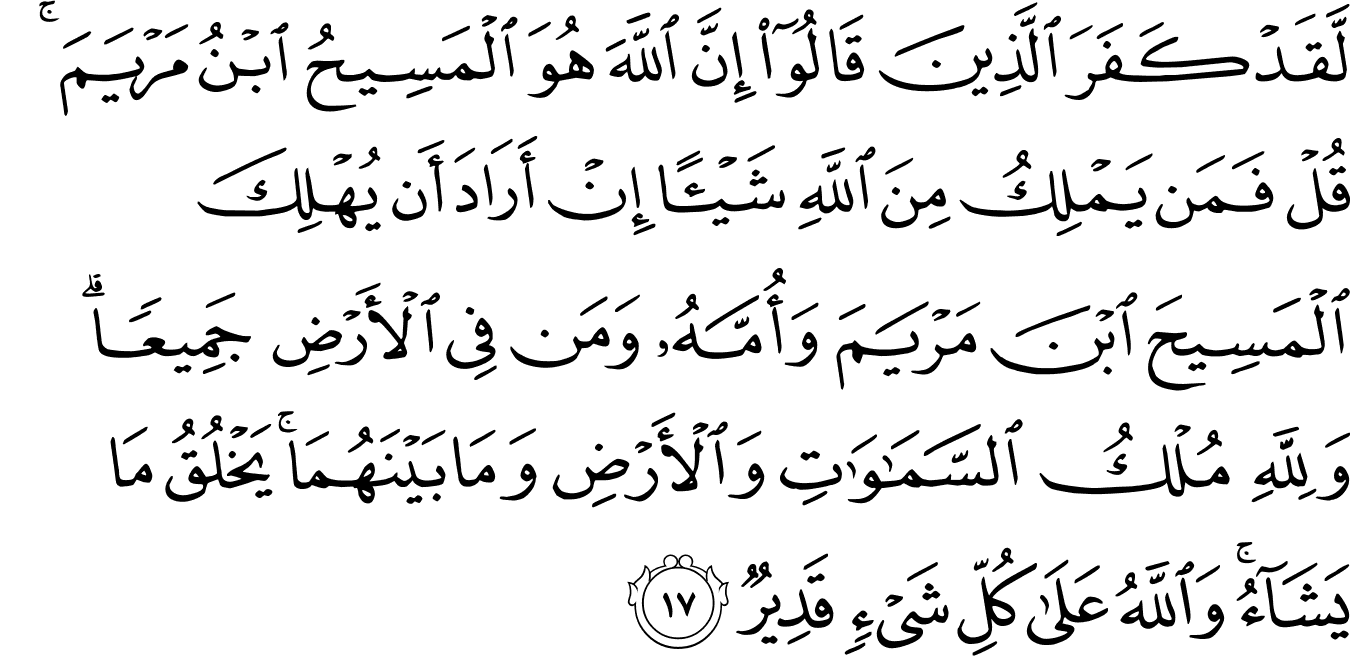 لَّقَدْ كَفَرَ ٱلَّذِينَ قَالُوٓا۟ إِنَّ ٱللَّهَ هُوَ ٱلْمَسِيحُ ٱبْنُ مَرْيَمَ ۚ
قُلْ فَمَن يَمْلِكُ مِنَ ٱللَّهِ شَيْـًٔا إِنْ أَرَادَ أَن يُهْلِكَ
ٱلْمَسِيحَ ٱبْنَ مَرْيَمَ وَأُمَّهُۥ وَمَن فِى ٱلْأَرْضِ جَمِيعًا ۗ
وَلِلَّهِ مُلْكُ ٱلسَّمَـٰوَٰتِ وَٱلْأَرْضِ وَمَا بَيْنَهُمَا ۚ يَخْلُقُ مَا
يَشَآءُ ۚ وَٱللَّهُ عَلَىٰ كُلِّ شَىْءٍ قَدِيرٌ ١٧